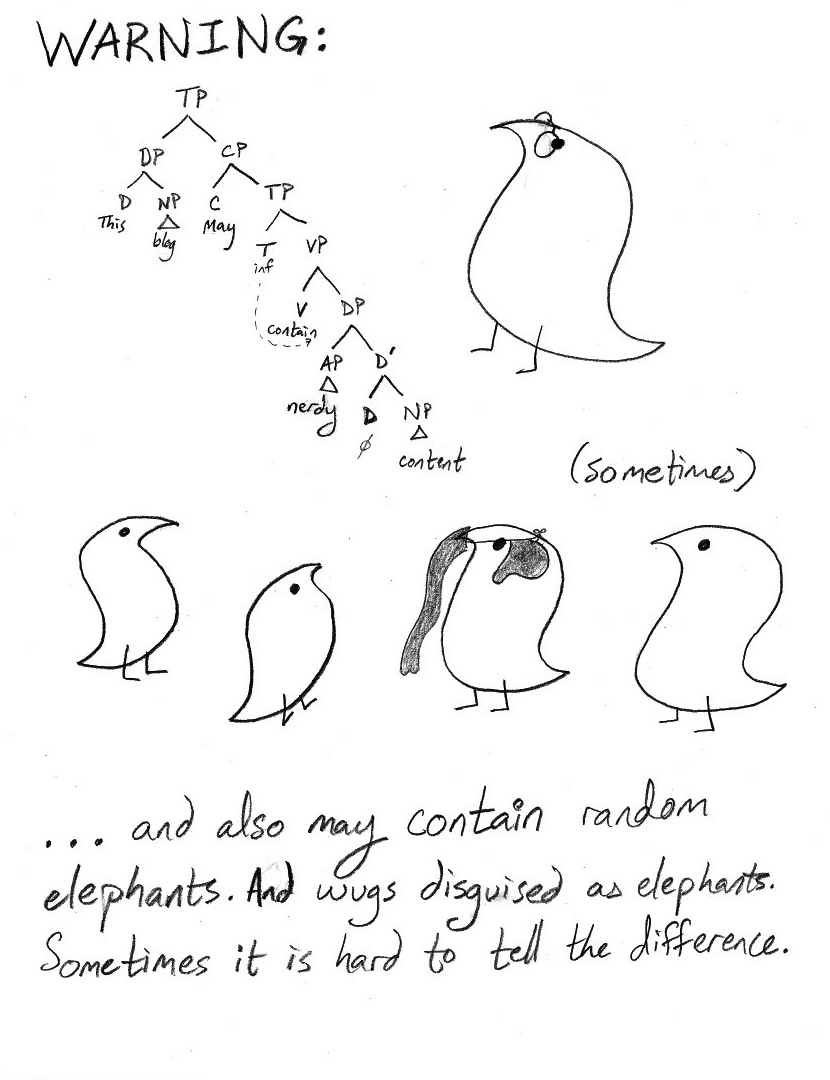 WARNING:
TP
DP CP
D NP C TP
This blog May T VP
inf
V DP
contain
AP D'
nerdy D NP
∅ content
(sometimes)
... and also may contain random
elephants. And wugs disguised as elephants.
Sometimes it is hard to tell the difference.